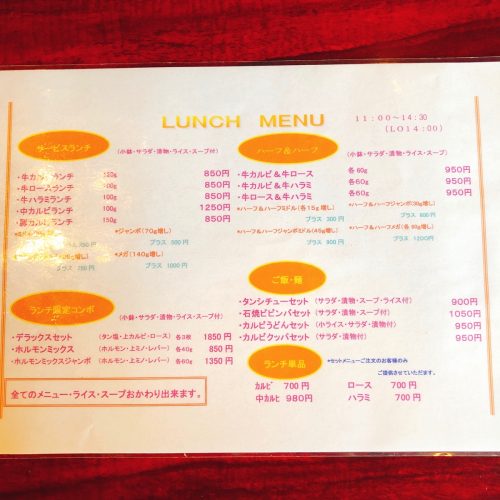 LUNCH MENU
11:00~14:30
(LO14:00)
サービスランチ
(小鉢・サラダ・漬物・ライス・スープ付)
・牛カルビランチ 120g 850円
・牛ロースランチ 850円
・牛ハラミランチ 100g 850円
・中カルビランチ 100g 1250円
ランチ 150g 850円
*ジャンボ(70g増し)
プラス 500円
*メガ(140g増し)
プラス 1000円
ハーフ&ハーフ
(小鉢・サラダ・漬物・ライス・スープ)
・牛カルビ&牛ロース 各60g 950円
・牛カルビ&牛ハラミ 各60g 950円
・牛ロース&牛ハラミ 各60g 950円
*ハーフ&ハーフミドル(各15g増し)
プラス 300円
*ハーフ&ハーフジャンボ(30g増し)
プラス 600円
*ハーフ&ハーフジャンボミドル(45g増し)
プラス 900円
*ハーフ&ハーフメガ(各60g増し)
プラス 1200円
ランチ限定コンボ
(小鉢・サラダ・漬物・ライス・スープ付)
・デラックスセット (タン塩・上カルビ・ロース) 各3枚 1850円
・ホルモンミックス (ホルモン・上ミノ・レバー) 各40g 850円
・ホルモンミックスジャンボ (ホルモン・上ミノ・レバー) 各60g 1350円
全てのメニュー・ライス・スープおかわり出来ます。
ご飯・麺
・タンシチューセット (サラダ・漬物・スープ・ライス付) 900円
・石焼ビビンバセット (サラダ・漬物・スープ付) 1050円
・カルビうどんセット (小ライス・サラダ・漬物付) 950円
・カルビクッパセット (サラダ・漬物付) 950円
ランチ単品
*セットメニューご注文のお客様のみ
ご提供させていただきます。
カルビ 700円 ロース 700円
中カルビ 980円 ハラミ 700円